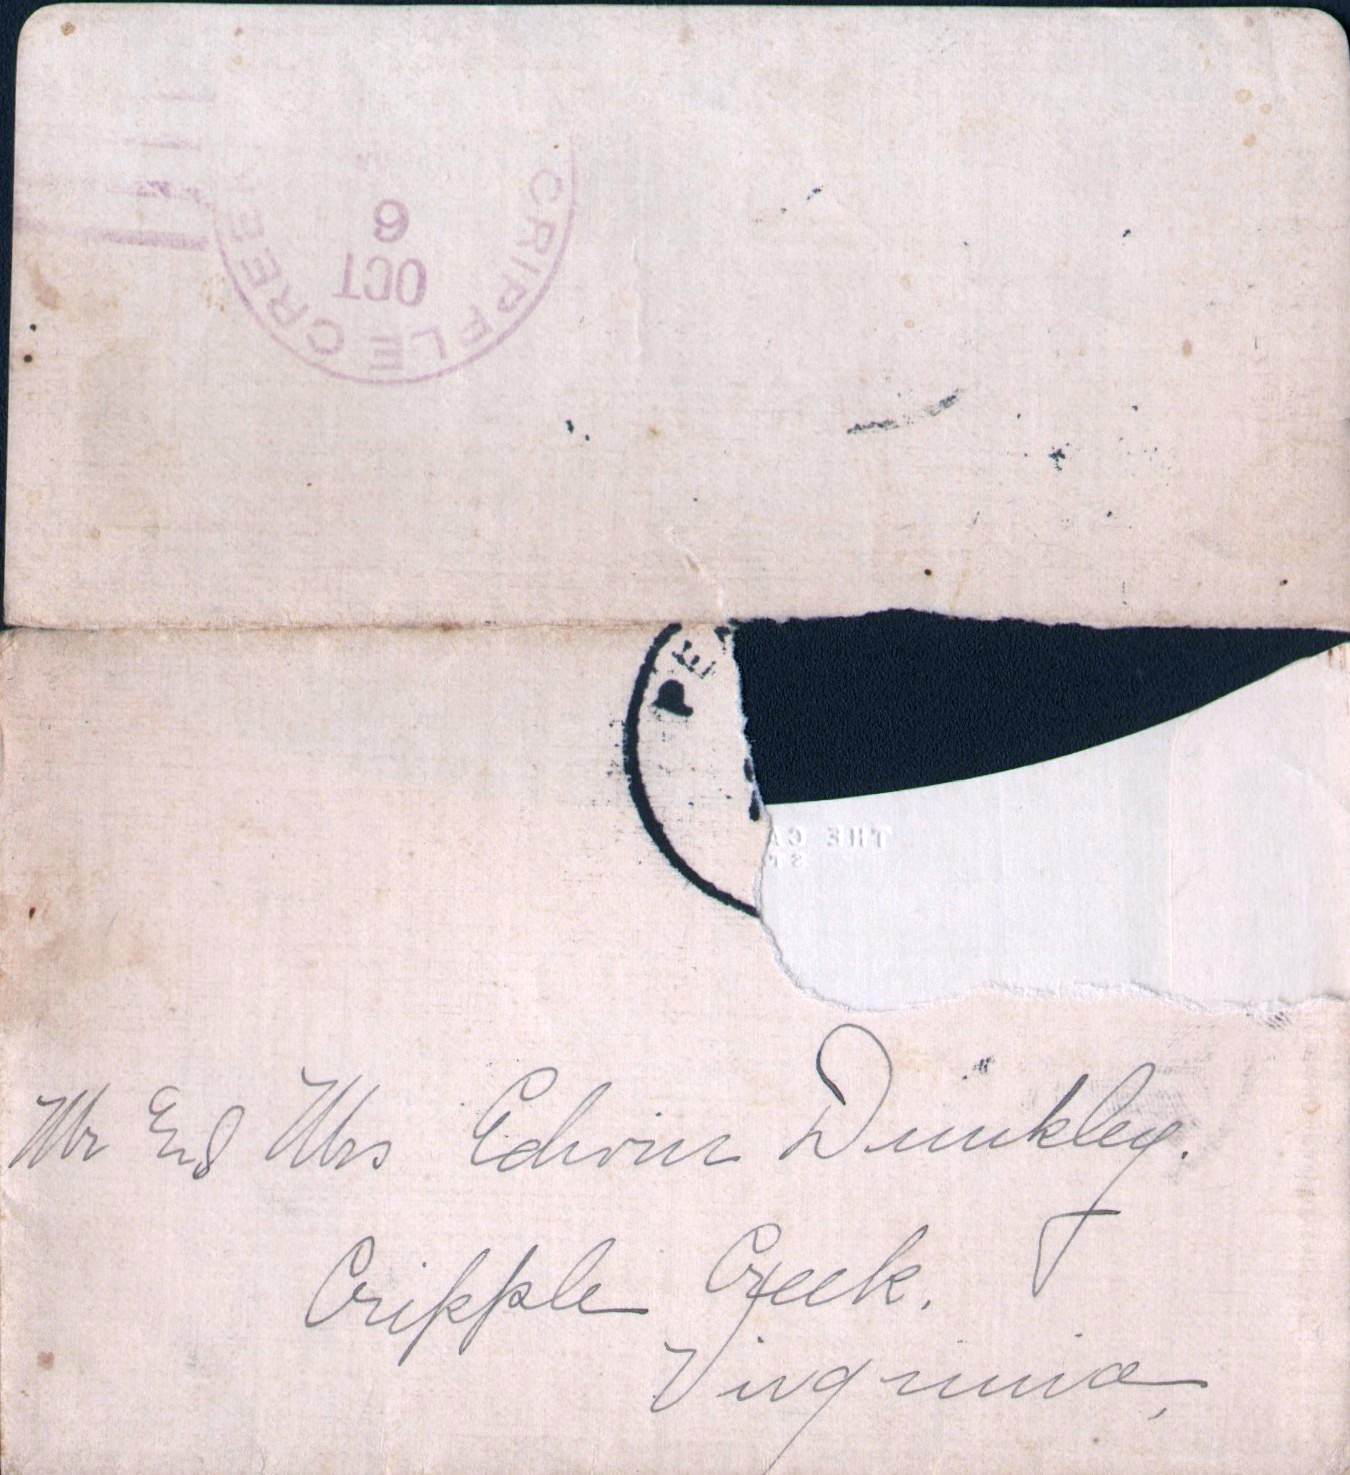 CRIPPLE CREEK
OCT
6
PE
THE CA
ST
Mr End Mrs Edwin Dunkley.
Cripple Creek.
Virginia,